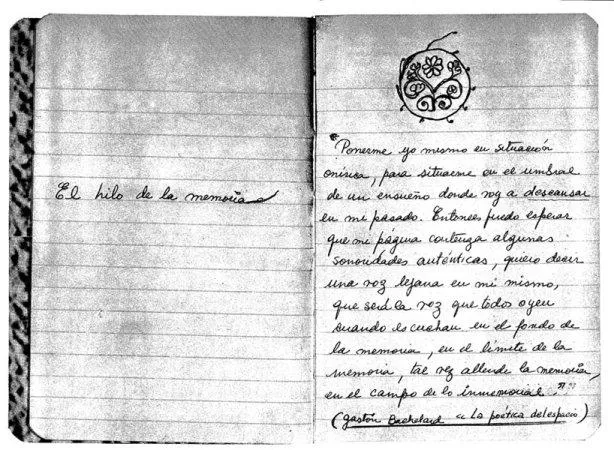 El hilo de la memoria
"Ponerme yo mismo en situación
onírica, para situarme en el umbral
de un ensueño donde voy a descansar
en mi pasado. Entonces puedo esperar
que mi página contenga algunas
sonoridades auténticas, quiero decir
una voz lejana en mí mismo,
que será la voz que todos oyen
cuando escuchan en el fondo de
la memoria, en el límite de la
memoria, tal vez allende la memoria,
en el campo de lo inmemorial."
(Gastón Bachelard "La poética del espacio)